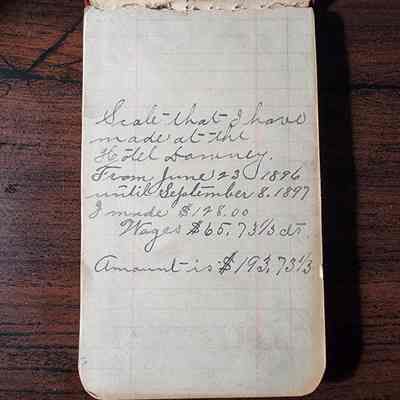 Scale that I have
made at the
Hotel Downey.
From June 23 1896
until September 8. 1897
I made $128.00
Wages $65,73 1/3 cts.
Amount is $193,73 1/3